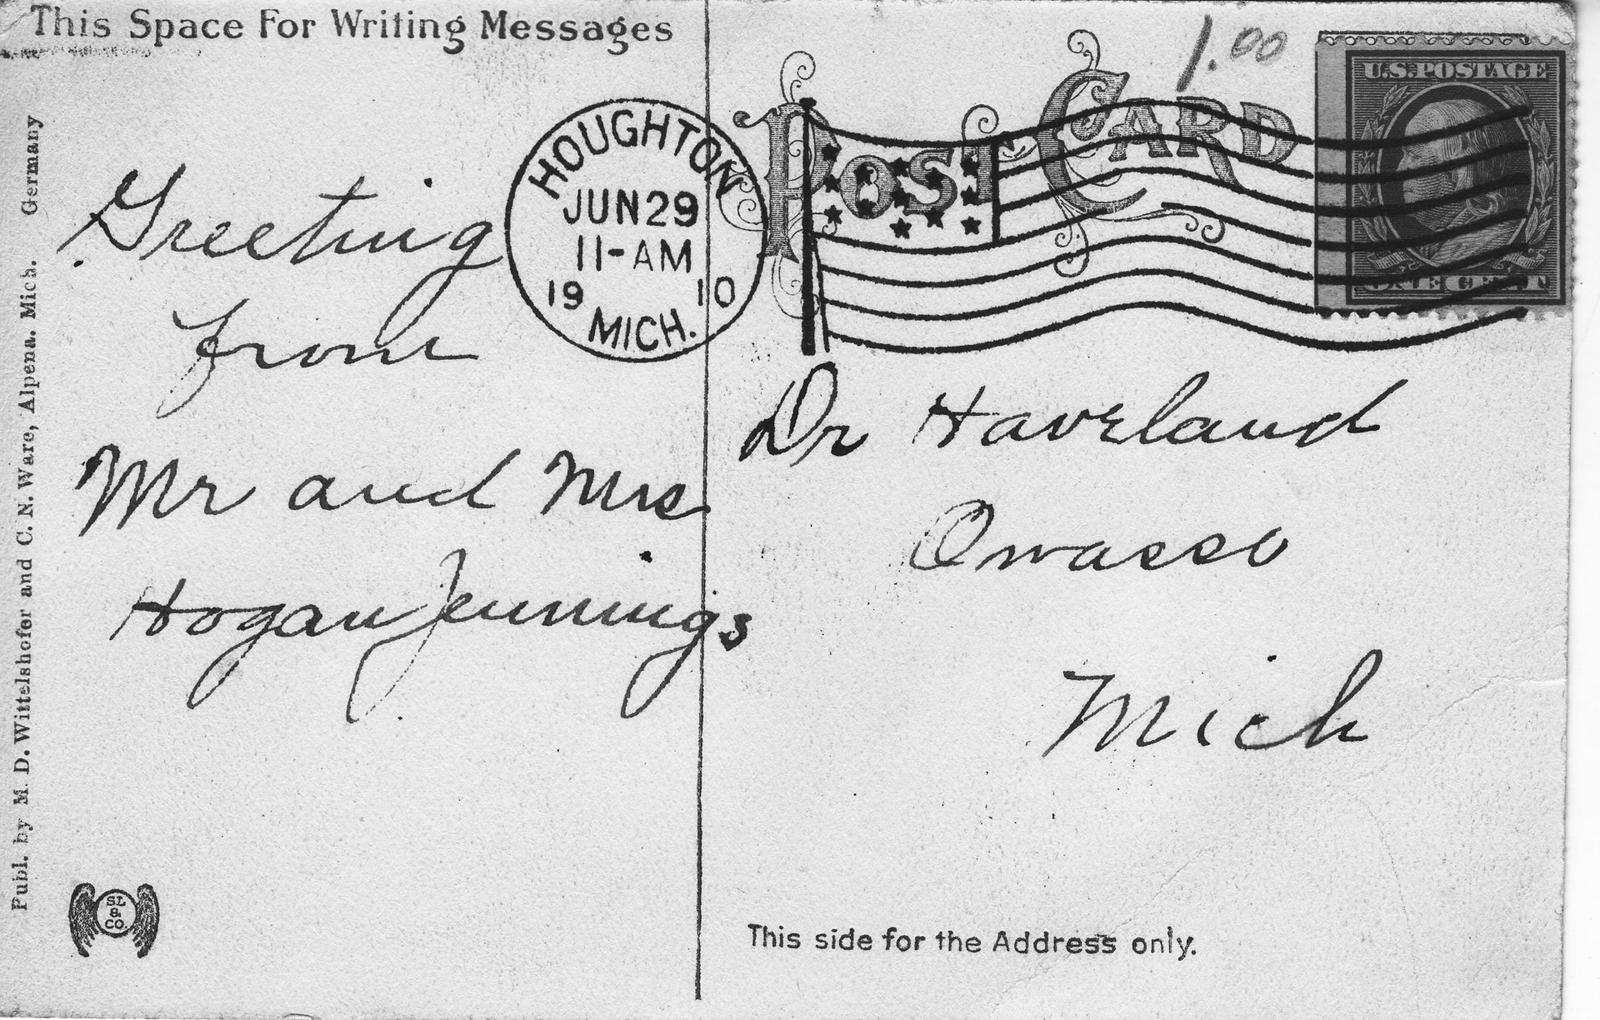 This Space For Writing Messages
Greeting
from
Mr and Mrs
Hogan Jennings
HOUGHTON
JUN 29
11-AM
19 10
MICH.
POST CARD
1.00
U.S. POSTAGE
ONE CENT
Dr Haveland
Owasso
Mich
This side for the Address only.
Publ. by M. D. Wittelshofer and C. N. Ware, Alpena. Mich. Germany
SL
&
CO.